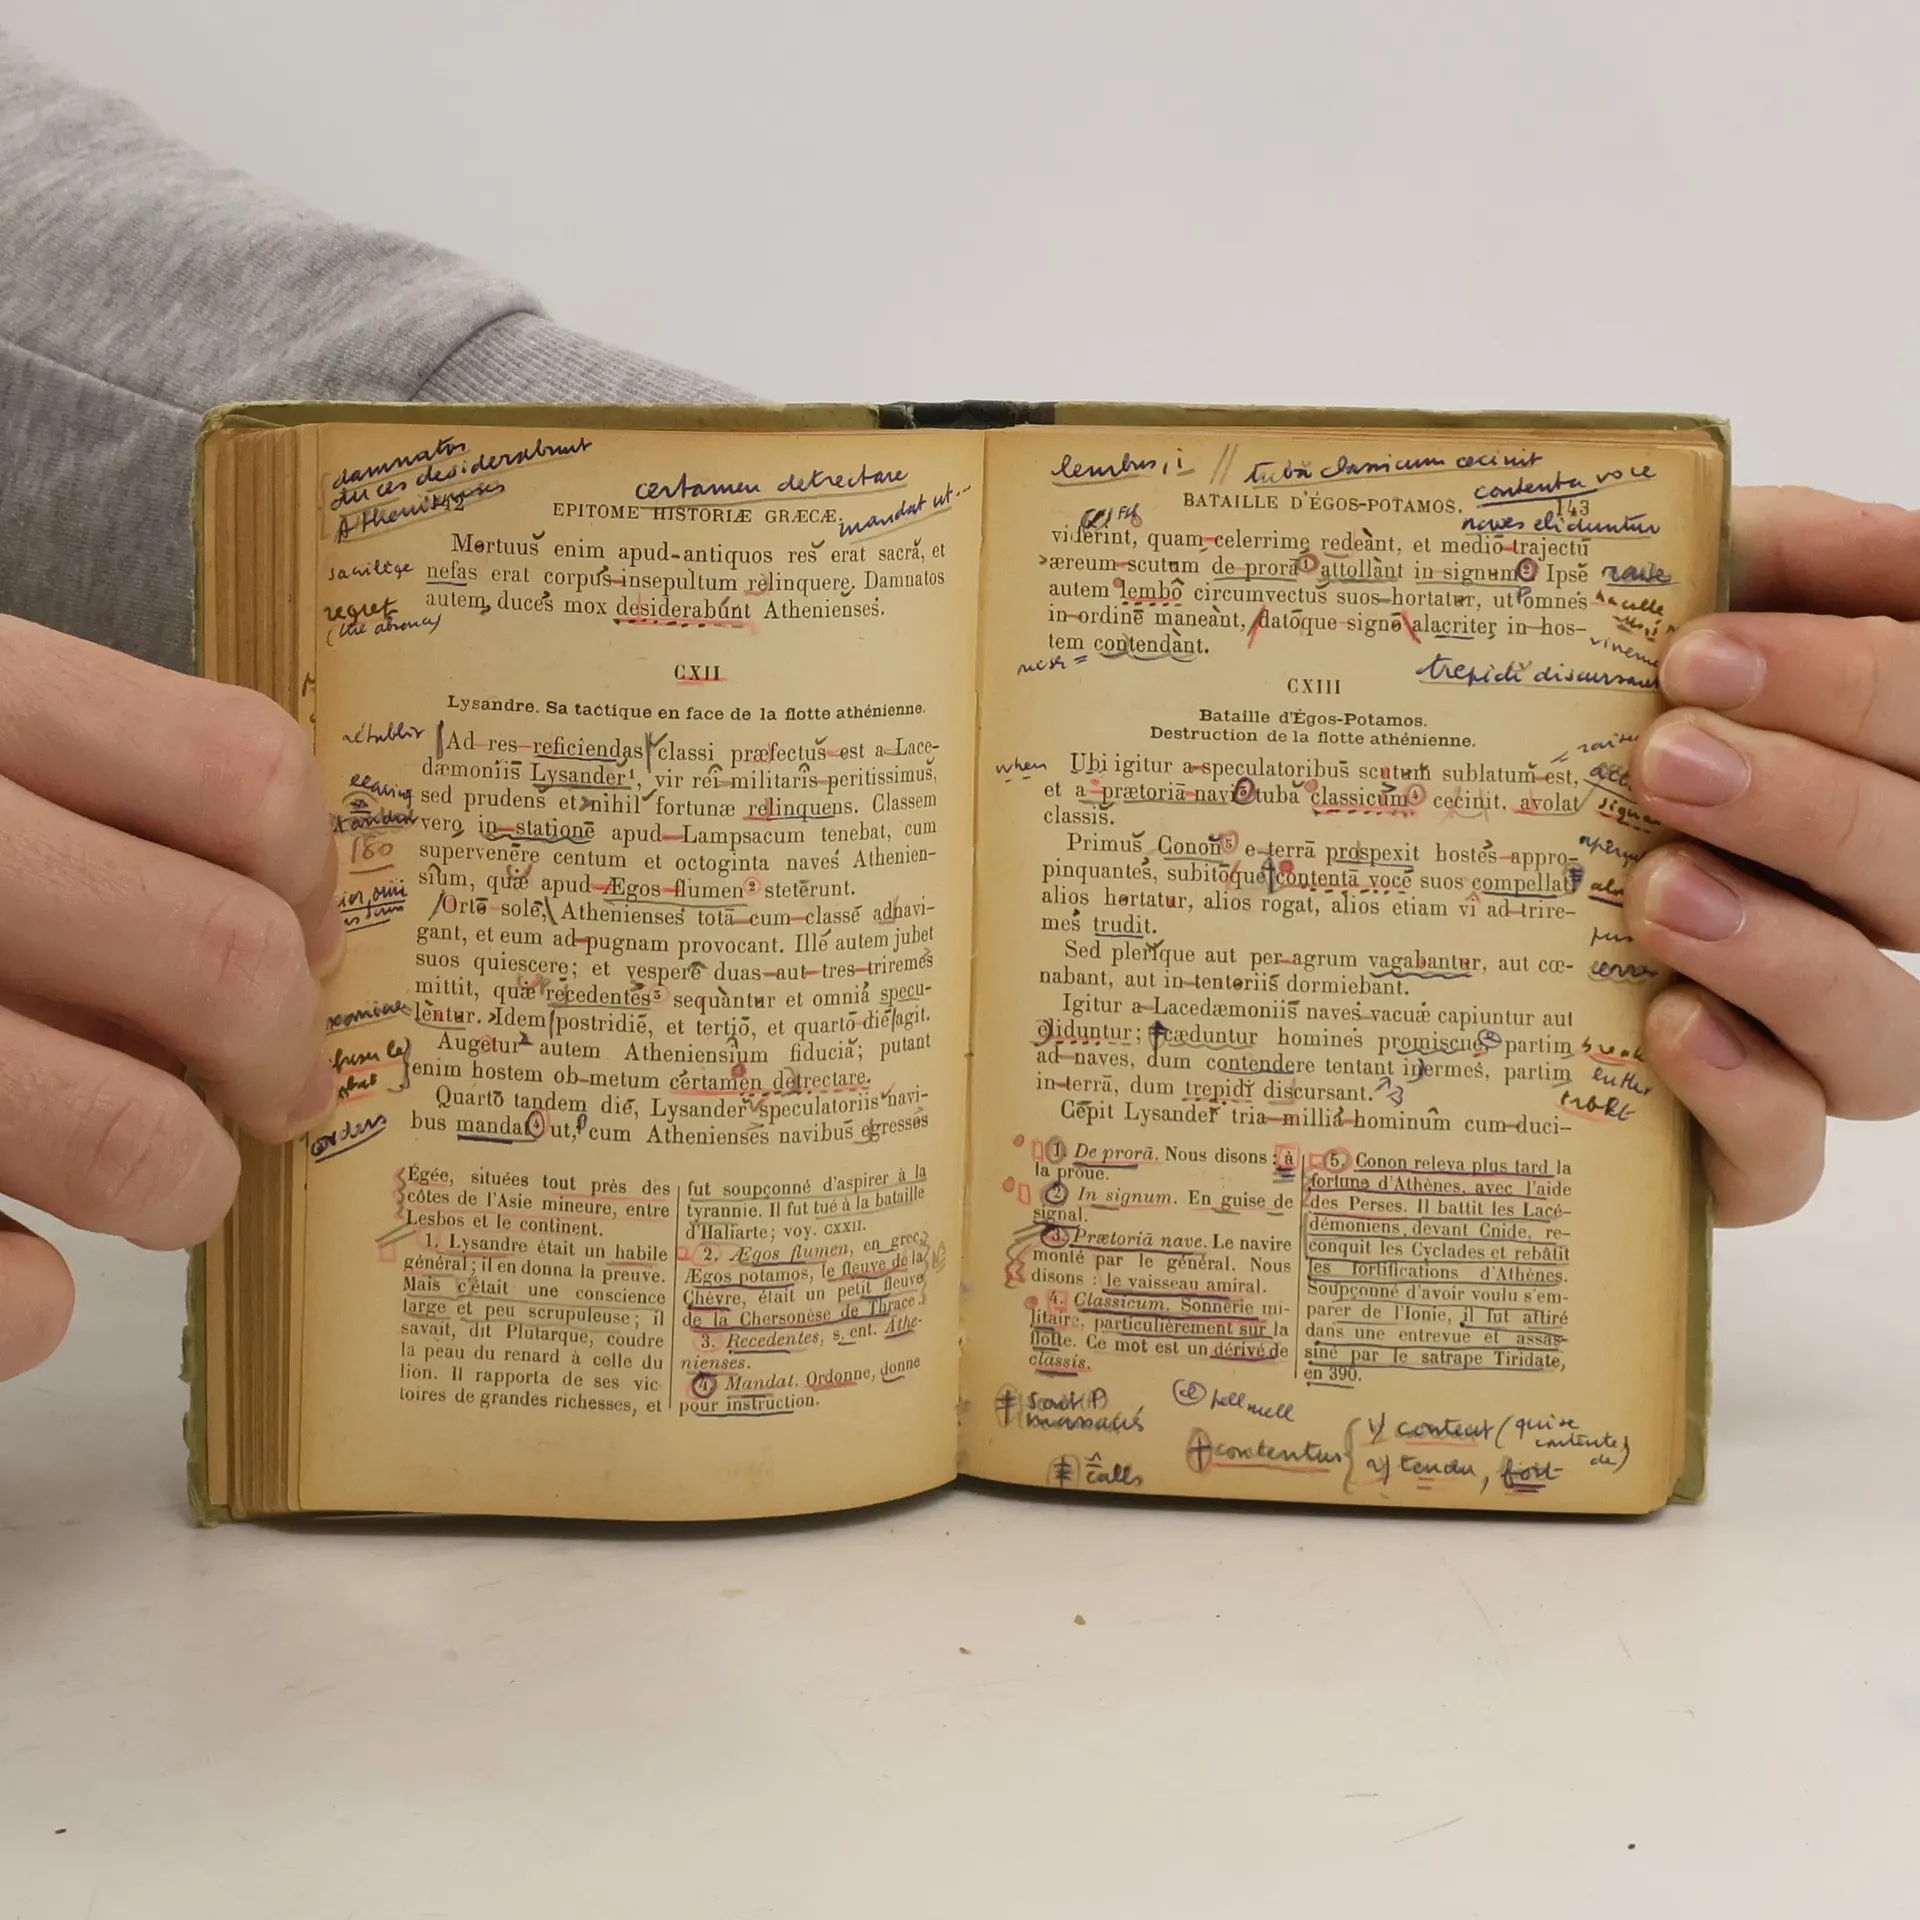 damnatos
duces desiderabunt
Athenienses
142
certamen detrectare
EPITOME HISTORIÆ GRÆCÆ.
mandat ut...
Mortuus enim apud antiquos res erat sacra, et
sacrilège
nefas erat corpus insepultum relinquere. Damnatos
regret
autem duces mox desiderabunt Athenienses.
(the absence)
CXII
Lysandre. Sa tactique en face de la flotte athénienne.
rétablir
Ad res reficiendas classi præfectus est a Lace-
dæmoniis Lysander1, vir rei militaris peritissimus,
leaving
sed prudens et nihil fortunæ relinquens. Classem
vero in statione apud Lampsacum tenebat, cum
180
supervenere centum et octoginta naves Athenien-
sium, quæ apud Ægos flumen2 steterunt.
Orto sole, Athenienses tota cum classe adnavi-
gant, et eum ad pugnam provocant. Ille autem jubet
suos quiescere; et vespere duas aut tres triremes
mittit, quæ recedentes3 sequantur et omnia specu-
lentur. Idem postridie, et tertio, et quarto die agit.
Augetur autem Atheniensium fiducia; putant
enim hostem ob metum certamen detrectare.
Quarto tandem die, Lysander speculatoriis navi-
orders
bus mandat4 ut, cum Athenienses navibus egressos
Égée, situées tout près des
côtes de l'Asie mineure, entre
Lesbos et le continent.
1. Lysandre était un habile
général; il en donna la preuve.
Mais c'était une conscience
large et peu scrupuleuse; il
savait, dit Plutarque, coudre
la peau du renard à celle du
lion. Il rapporta de ses vic-
toires de grandes richesses, et
fut soupçonné d'aspirer à la
tyrannie. Il fut tué à la bataille
d'Haliarte; voy. CXXII.
2. Ægos flumen, en grec
Ægos potamos, le fleuve de la
Chèvre, était un petit fleuve
de la Chersonèse de Thrace.
3. Recedentes, s. ent. Athe-
nienses.
4. Mandat. Ordonne, donne
pour instruction.
lembus, i // tubā classicum cecinit
contenta voce
BATAILLE D'ÉGOS-POTAMOS. 143
naves eliduntur
viderint, quam celerrime redeant, et medio trajectu
æreum scutum de prora1 attollant in signum2. Ipse
raise
autem lembo circumvectus suos hortatur, ut omnes
in ordine maneant, datoque signo alacriter in hos-
tem contendant.
trepidi discursant
CXIII
Bataille d'Égos-Potamos.
Destruction de la flotte athénienne.
when
Ubi igitur a speculatoribus scutum sublatum est,
et a prætoria navi3 tuba classicum4 cecinit, avolat
classis.
Primus Conon5 e terra prospexit hostes appro-
pinquantes, subitoque contenta voce suos compellat,
alios hortatur, alios rogat, alios etiam vi ad trire-
mes trudit.
Sed plerique aut per agrum vagabantur, aut cœ-
nabant, aut in tentoriis dormiebant.
Igitur a Lacedæmoniis naves vacuæ capiuntur aut
eliduntur; cæduntur homines promiscue, partim
break
ad naves, dum contendere tentant inermes, partim
in terra, dum trepidi discursant.
Cepit Lysander tria millia hominum cum duci-
1. De prorā. Nous disons : à
la proue.
2. In signum. En guise de
signal.
3. Prætoriā nave. Le navire
monté par le général. Nous
disons : le vaisseau amiral.
4. Classicum. Sonnerie mi-
litaire, particulièrement sur la
flotte. Ce mot est un dérivé de
classis.
5. Conon releva plus tard la
fortune d'Athènes, avec l'aide
des Perses. Il battit les Lacé-
démoniens devant Cnide, re-
conquit les Cyclades et rebâtit
les fortifications d'Athènes.
Soupçonné d'avoir voulu s'em-
parer de l'Ionie, il fut attiré
dans une entrevue et assas-
siné par le satrape Tiridate,
en 390.
sont
massacrés
pell mell
calls
contentus
1) content (qui se
contente de)
2) tendu, fort